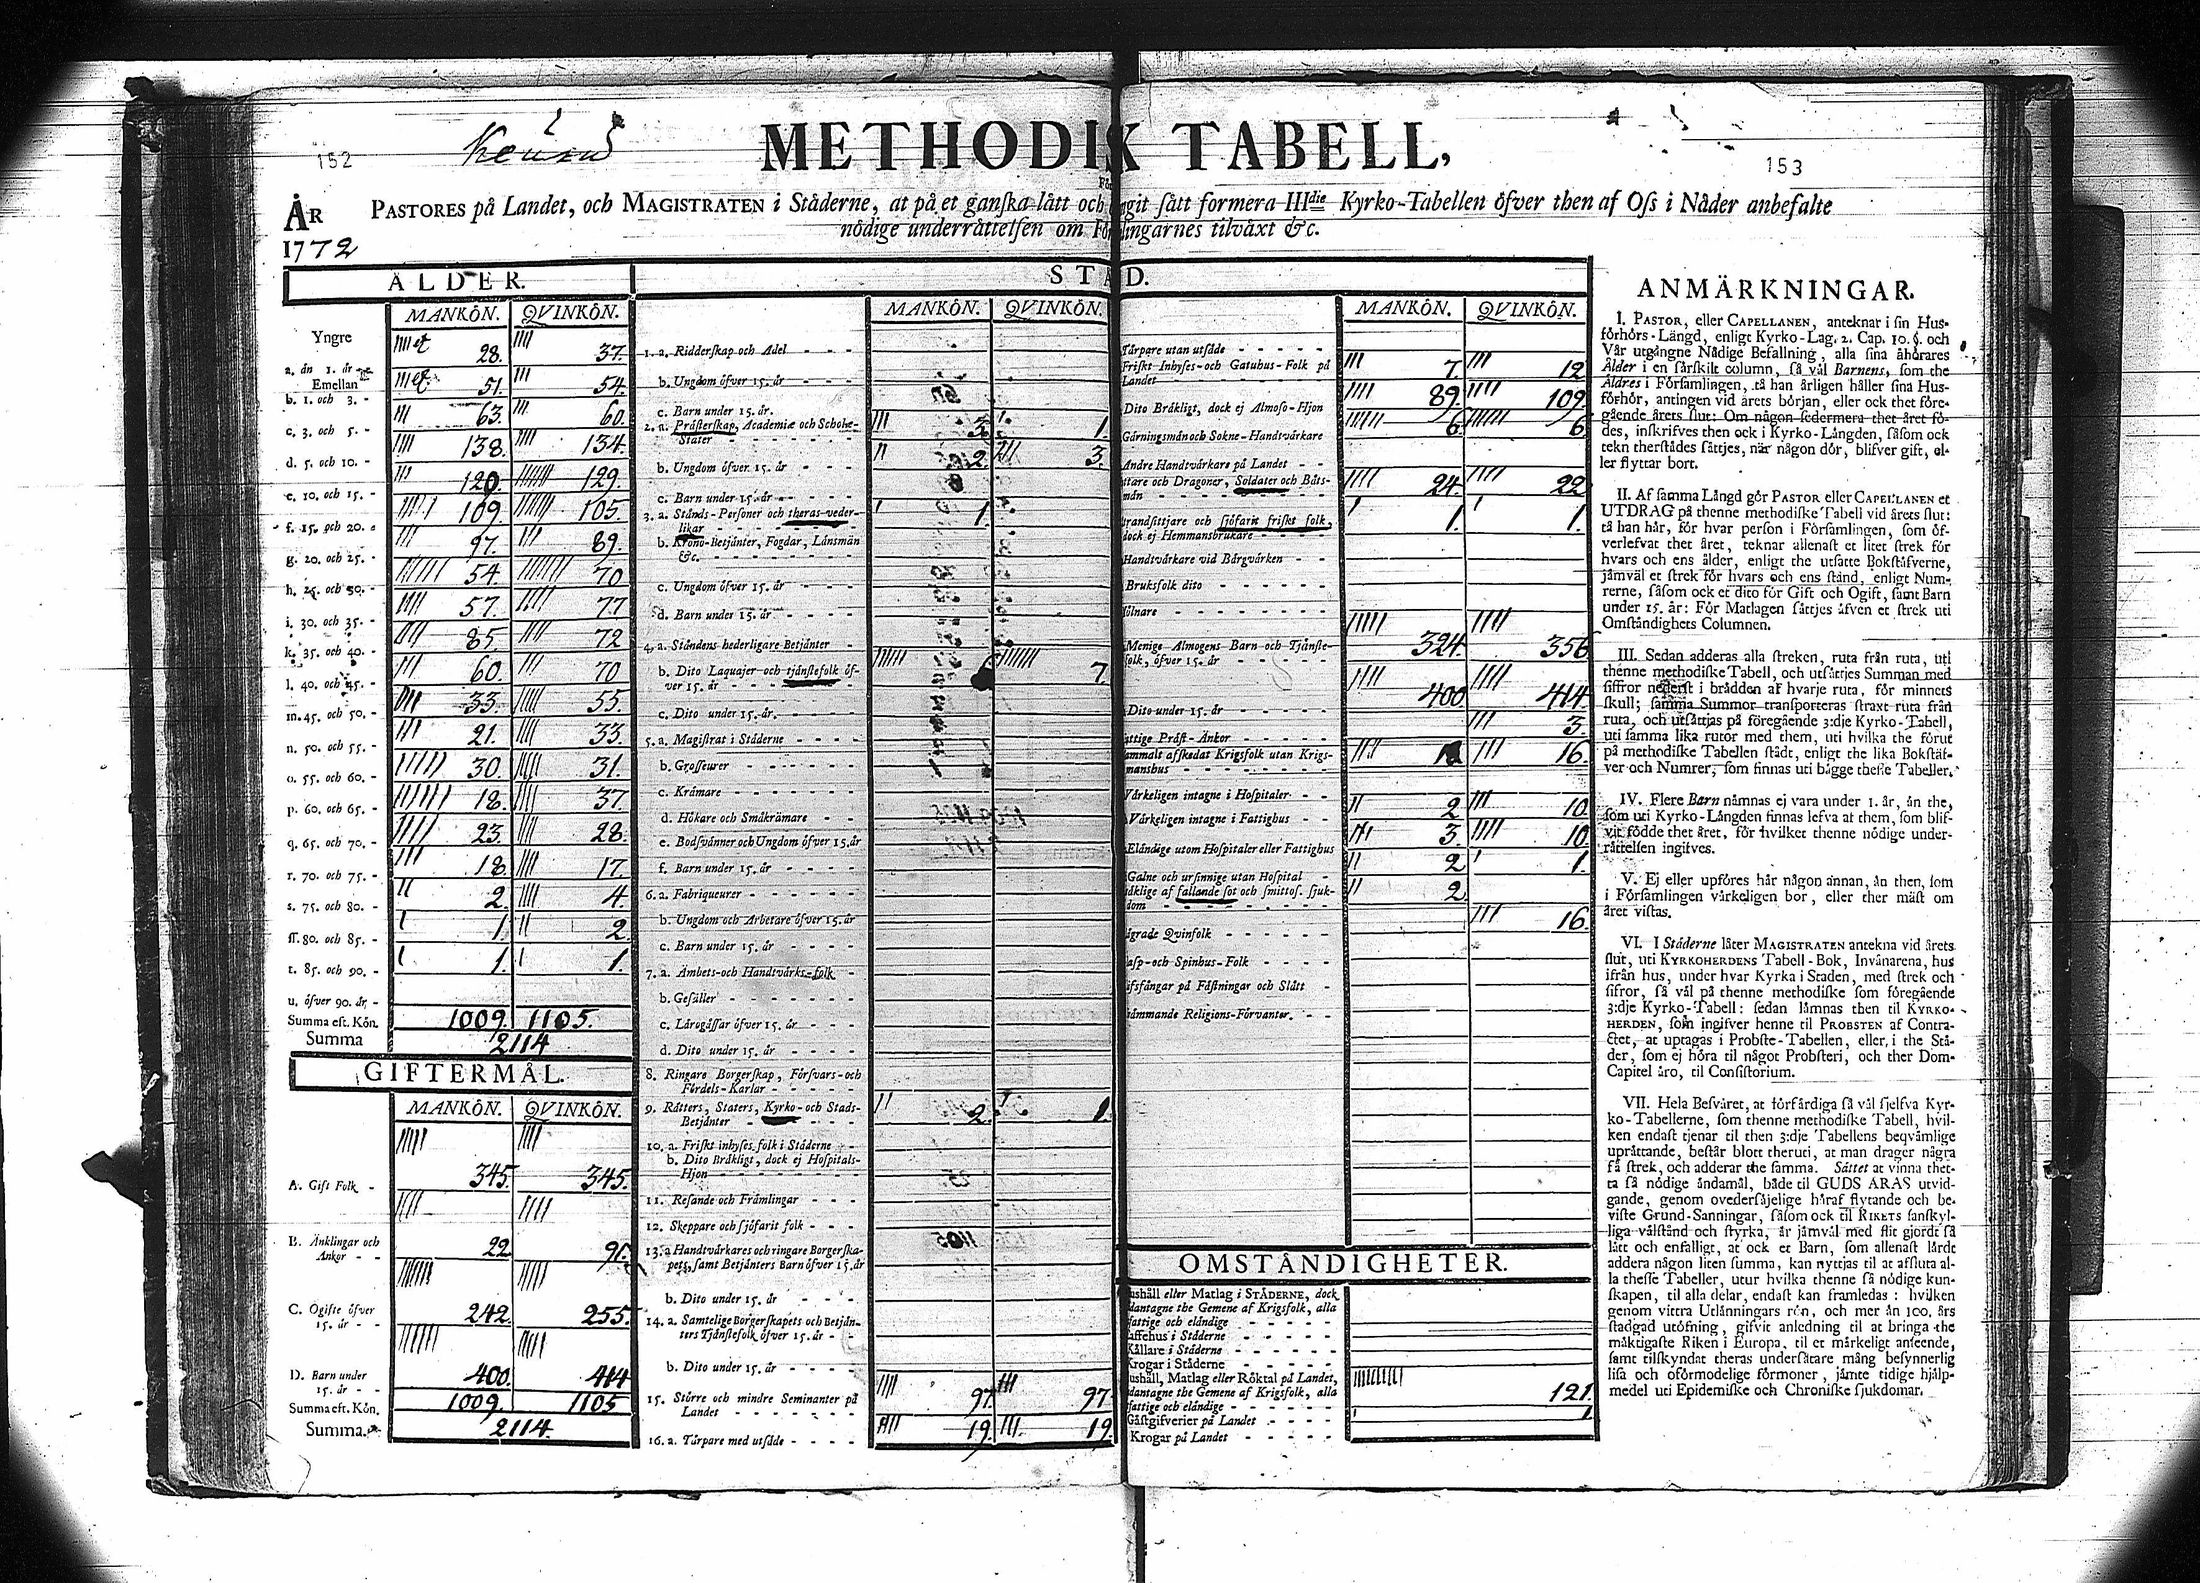 152
METHODIK TABELL,
153
ÅR
1772
PASTORES på Landet, och MAGISTRATEN i Städerne, at på et ganſka lått och
ſått formera IIIdie Kyrko-Tabellen öfver then af Oſs i Nåder anbefalte
nödige underråttelſen om Förſamlingarnes tilvåxt &c.
ÅLDER.
MANKÖN. QVINKÖN.
Yngre
a. än 1. år 28. 37.
Emellan
b. 1. och 3. - 51. 54.
c. 3. och 5. - 63. 60.
d. 5. och 10. - 138. 134.
e. 10. och 15. - 120. 129.
f. 15. och 20. 109. 105.
g. 20. och 25. - 97. 89.
h. 25. och 30. - 54. 70
i. 30. och 35. - 57. 77
k. 35. och 40. - 85. 72
l. 40. och 45. - 60. 70
m. 45. och 50. - 33. 55.
n. 50. och 55. - 21. 33.
o. 55. och 60. - 30. 31.
p. 60. och 65. - 18. 37.
q. 65. och 70. - 23. 28.
r. 70. och 75. - 18. 17.
s. 75. och 80. - 2. 4.
ſſ. 80. och 85. - 1. 2.
t. 85. och 90. - 1. 1.
u. öfver 90. år, -
Summa eft. Kön. 1009. 1105.
Summa 2114
GIFTERMÅL.
MANKÖN. QVINKÖN.
A. Gift Folk - 345. 345.
B. Änklingar och
Änkor - - 22 91.
C. Ogifte öfver
15. år - - 242. 255.
D. Barn under
15. år - - 400. 414
Summa eft. Kön. 1009. 1105
Summa. 2114.
STÅD.
MANKÖN. QVINKÖN.
1. a. Ridderſkap och Adel - - -
b. Ungdom öfver 15. år - - -
c. Barn under 15. år.
2. a. Präſterſkap, Academiæ och Schole-
Stater - - - - - - 3. 1.
b. Ungdom öfver 15. år - - - 2. 3.
c. Barn under 15. år - - - -
3. a. Stånds-Perſoner och theras veder-
likar - - - - - - 1.
b. Krono-Betjänter, Fogdar, Länsmän
&c.
c. Ungdom öfver 15. år - - -
d. Barn under 15. år - - - -
4. a. Ståndens hederligare Betjänter -
b. Dito Laquajer och tjänſtefolk öf-
ver 15. år - - - - - - 7.
c. Dito under 15. år. - - - -
5. a. Magiſtrat i Städerne - - - -
b. Groſſeurer - - - - - -
c. Krämare - - - - - - -
d. Hökare och Småkrämare - - -
e. Bodſvänner och Ungdom öfver 15. år
f. Barn under 15. år - - - -
6. a. Fabriqueurer - - - - - -
b. Ungdom och Arbetare öfver 15. år
c. Barn under 15. år - - - -
7. a. Ämbets-och Handtvärks-folk -
b. Geſäller - - - - - - -
c. Lärogåſſar öfver 15. år - - -
d. Dito under 15. år - - - -
8. Ringare Borgerſkap, Förſvars-och
Fördels-Karlar - - - - -
9. Råtters, Staters, Kyrko-och Stads-
Betjänter - - - - - - 2. 1.
10. a. Friſkt inhyſes folk i Städerne - -
b. Dito Bräkligt, dock ej Hoſpitals-
Hjon - - - - - - -
11. Reſande och Främlingar - - -
12. Skeppare och ſjöfarit folk - - -
13. a Handtvärkares och ringare Borgerſka-
pets, ſamt Betjänters Barn öfver 15. år
b. Dito under 15. år - - - -
14. a. Samtelige Borgerſkapets och Betjän-
ters Tjänſtefolk öfver 15. år - -
b. Dito under 15. år - - - -
15. Större och mindre Seminanter på
Landet - - - - - - - 97. 97.
16. a. Tårpare med utſäde - - - - 19. 19.
MANKÖN. QVINKÖN.
Tårpare utan utſäde - - - - - 7. 12
Friſkt Inhyſes-och Gatuhus-Folk på
Landet - - - - - - - 89. 109.
Dito Bräkligt, dock ej Almoſo-Hjon 6. 6.
Gärningsmän och Sokne-Handtvärkare
Andre Handtvärkare på Landet - - 24. 22
och Dragoner, Soldater och Båts-
män - - - - - - - 1. 1.
och ſjöfarit friſkt folk,
dock ej Hemmansbrukare - - - -
Handtvärkare vid Bärgvärken - -
Bruksfolk dito - - - - - -
Menige Almogens Barn och Tjänſte- 324. 356
folk, öfver 15. år - - - -
Dito under 15. år - - - - - 400. 414.
Präſt-Änkor - - - - 3.
afſkedat Krigsfolk utan Krigs-
manshus - - - - - - 16.
Värkeligen intagne i Hoſpitaler - - 2 10.
Värkeligen intagne i Fattighus - - 3. 10.
Eländige utom Hoſpitaler eller Fattighus 2 1.
Galne och urſinnige utan Hoſpital - 2.
af fallande ſot och ſmittoſ. ſjuk-
dom - - - - - - -
Qvinfolk - - - - - - 16.
och Spinhus-Folk - - - -
på Fäſtningar och Slått -
Religions-Förvanter. - - -
OMSTÄNDIGHETER.
eller Matlag i STÄDERNE, dock
the Gemene af Krigsfolk, alla
fattige och eländige - - - - -
i Städerne - - - - - -
Källare i Städerne - - - - - -
Krogar i Städerne - - - - - -
Matlag eller Röktal på Landet,
the Gemene af Krigsfolk, alla
fattige och eländige - - - - - 121.
Gäſtgifverier på Landet - - - - 1
Krogar på Landet - - - - -
ANMÄRKNINGAR.
I. PASTOR, eller CAPELLANEN, anteknar i ſin Hus-
förhörs-Längd, enligt Kyrko-Lag. 2. Cap. 10. §. och
Vår utgångne Nådige Befallning, alla ſina åhörares
Ålder i en ſärſkilt column, ſå väl Barnens, ſom the
Äldres i Förſamlingen, tå han årligen håller ſina Hus-
förhör, antingen vid årets början, eller ock thet före-
gående årets ſlut: Om någon ſedermera thet året fö-
des, inſkrifves then ock i Kyrko-Längden, ſåſom ock
tekn therſtädes ſättjes, när någon dör, blifver gift, el-
ler flyttar bort.
II. Af ſamma Längd gör PASTOR eller CAPELLANEN et
UTDRAG på thenne methodiſke Tabell vid årets ſlut:
tå han här, för hvar perſon i Förſamlingen, ſom öf-
verlefvat thet året, teknar allenaſt et litet ſtrek för
hvars och ens ålder, enligt the utſatte Bokſtäfverne,
jämväl et ſtrek för hvars och ens ſtånd, enligt Num-
rerne, ſåſom ock et dito för Gift och Ogift, ſamt Barn
under 15. år: För Matlagen ſättjes äfven et ſtrek uti
Omſtändighets Columnen.
III. Sedan adderas alla ſtreken, ruta från ruta, uti
thenne methodiſke Tabell, och utſättjes Summan med
ſiffror nederſt i brädden af hvarje ruta, för minnets
ſkull; ſamma Summor transporteras ſtraxt ruta från
ruta, och utſättjas på föregående 3:dje Kyrko-Tabell,
uti ſamma lika rutor med them, uti hvilka the förut
på methodiſke Tabellen ſtådt, enligt the lika Bokſtäf-
ver och Numrer, ſom finnas uti bägge theſſe Tabeller.
IV. Flere Barn nämnas ej vara under 1. år, än the,
ſom uti Kyrko-Längden finnas lefva af them, ſom blif-
vit födde thet året, för hvilket thenne nödige under-
rättelſen ingifves.
V. Ej eller upföres här någon annan, än then, ſom
i Förſamlingen värkeligen bor, eller ther mäſt om
året viſtas.
VI. I Städerne låter MAGISTRATEN antekna vid årets
ſlut, uti KYRKOHERDENS Tabell-Bok, Invånarena, hus
ifrån hus, under hvar Kyrka i Staden, med ſtrek och
ſifror, ſå väl på thenne methodiſke ſom föregående
3:dje Kyrko-Tabell: ſedan lämnas then til KYRKO-
HERDEN, ſom ingifver henne til PROBSTEN af Contra-
ctet, at uptagas i Probſte-Tabellen, eller, i the Stä-
der, ſom ej höra til något Probſteri, och ther Dom-
Capitel äro, til Conſiſtorium.
VII. Hela Beſväret, at förfärdiga ſå väl ſjelfva Kyr-
ko-Tabellerne, ſom thenne methodiſke Tabell, hvil-
ken endaſt tjenar til then 3:dje Tabellens beqvämlige
uprättande, beſtår blott theruti, at man drager några
få ſtrek, och adderar the ſamma. Sättet at vinna thet-
ta ſå nödige ändamål, både til GUDS ÄRAS utvid-
gande, genom ovederſäjelige häraf flytande och be-
viſte Grund-Sanningar, ſåſom ock til RIKETS ſanſkyl-
liga välſtånd och ſtyrka, är jämväl med flit gjordt ſå
lätt och enfalligt, at ock et Barn, ſom allenaſt lärdt
addera någon liten ſumma, kan nyttjas til at aſluta al-
la theſſe Tabeller, utur hvilka thenne ſå nödige kun-
ſkapen, til alla delar, endaſt kan framledas: hvilken
genom vittra Utlänningars rön, och mer än 100. års
ſtadgad utöfning, gifvit anledning til at bringa the
mäktigaſte Riken i Europa, til et märkeligt anſeende,
ſamt tilſkyndat theras underſåtare mång beſynnerlig
liſa och oförmodelige förmoner, jämte tidige hjälp-
medel uti Epidemiſke och Chroniſke ſjukdomar.